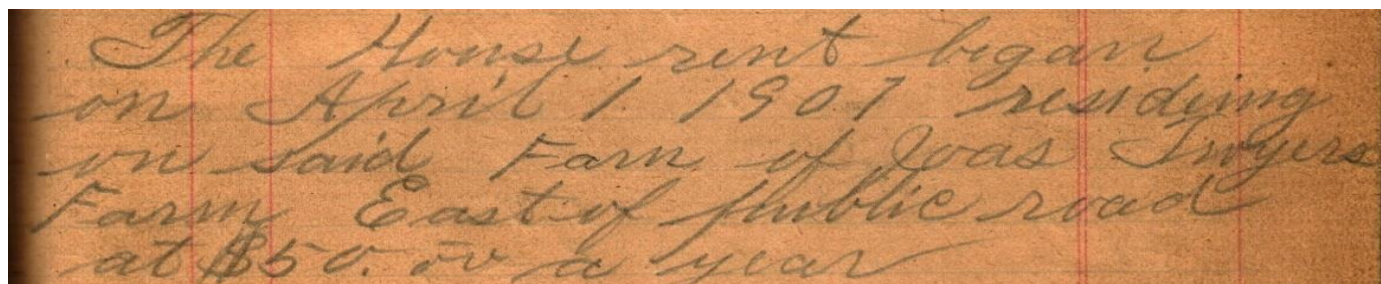 The House rent began
on April 1 1907 residing
on said Farn of Joas Troyers
Farm East of public road
at $50.00 a year